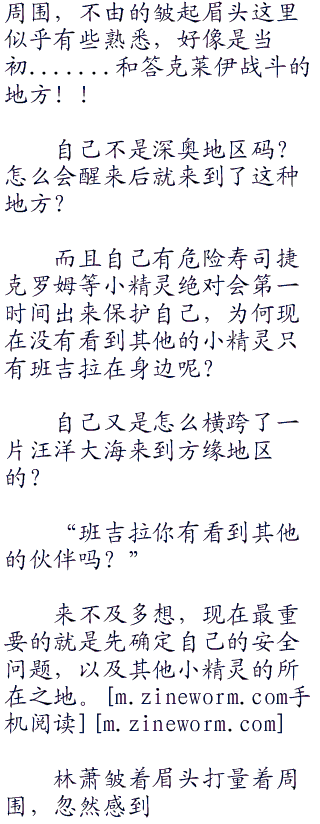 周围，不由的皱起眉头这里
似乎有些熟悉，好像是当
初.......和答克莱伊战斗的
地方！！
自己不是深奥地区码？
怎么会醒来后就来到了这种
地方？
而且自己有危险寿司捷
克罗姆等小精灵绝对会第一
时间出来保护自己，为何现
在没有看到其他的小精灵只
有班吉拉在身边呢？
自己又是怎么横跨了一
片汪洋大海来到方缘地区
的？
“班吉拉你有看到其他
的伙伴吗？”
来不及多想，现在最重
要的就是先确定自己的安全
问题，以及其他小精灵的所
在之地。[m.zineworm.com手
机阅读][m.zineworm.com]
林萧皱着眉头打量着周
围，忽然感到